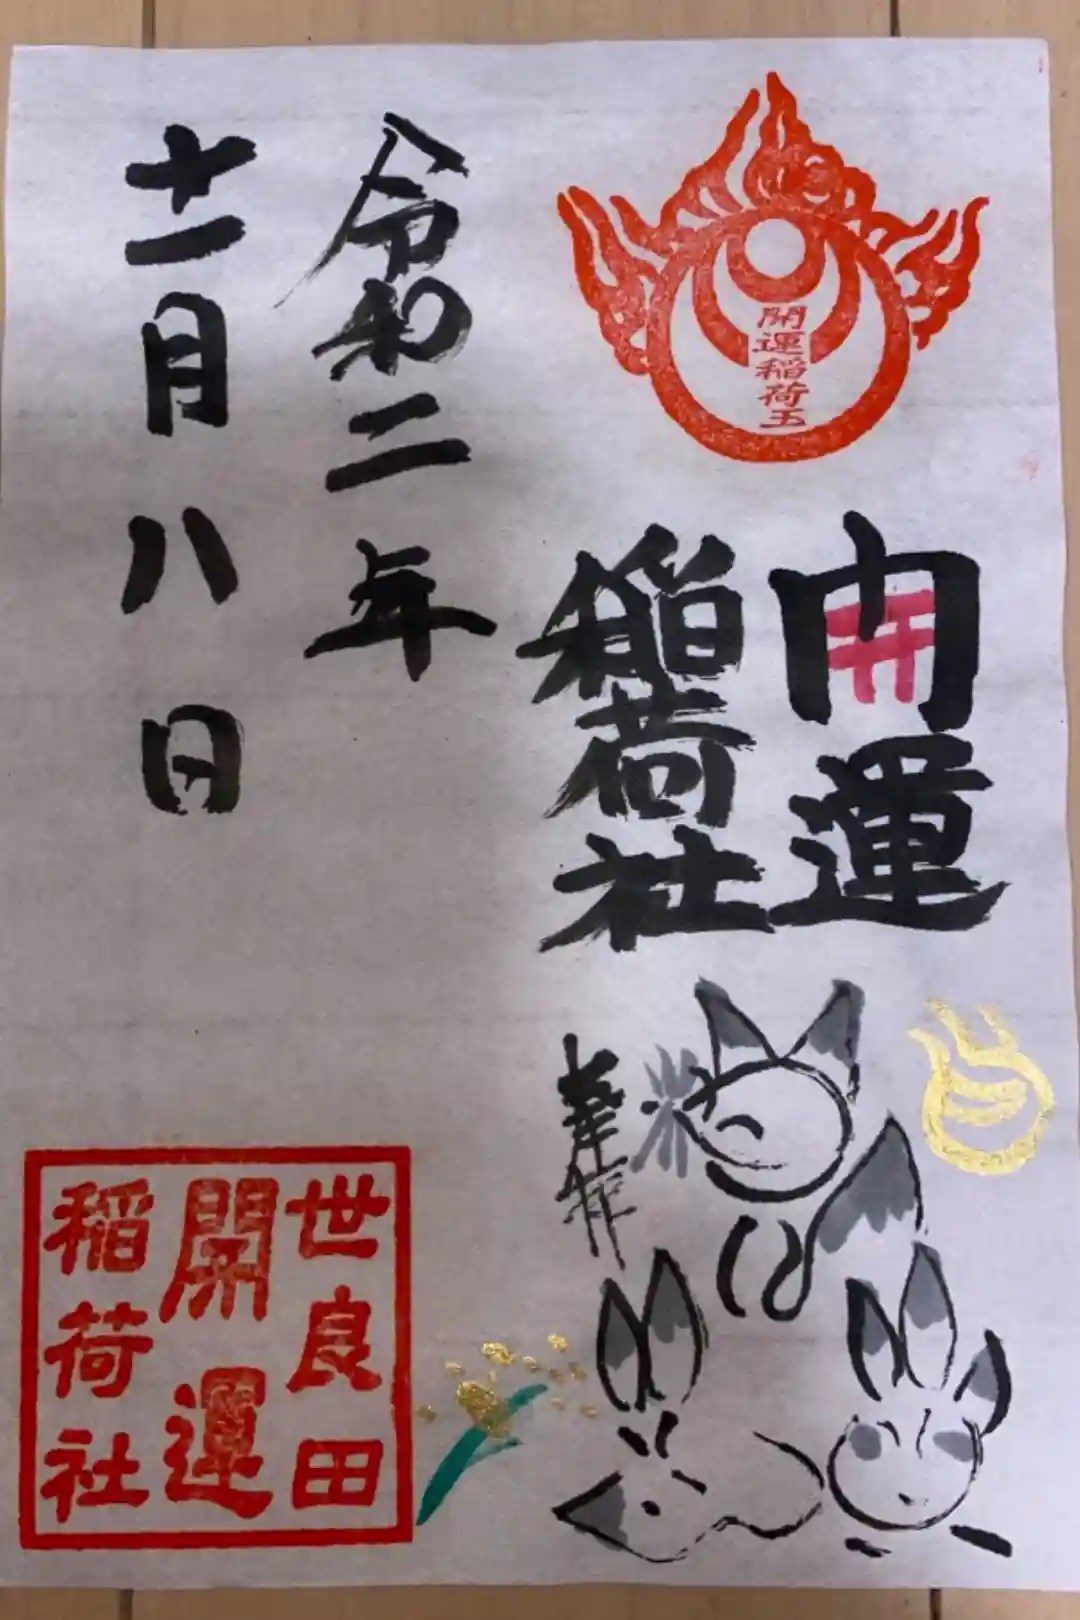 開運稲荷玉
開運
稲荷社
令和二年
十一月八日
世良田
開運
稲荷社